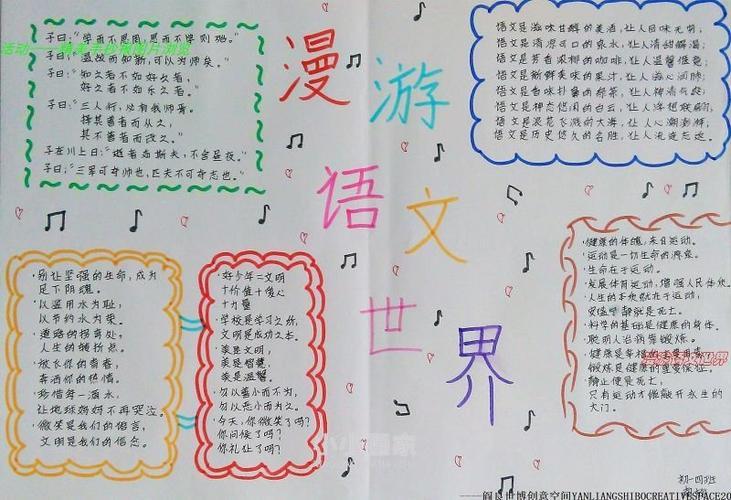 漫游
语文
世界
子曰："学而不思罔,思而不学则殆。"
活动——精美手抄报图片浏览
子曰："温故而知新,可以为师矣。"
子曰："知之者不如好之者,
好之者不如乐之者。"
子曰："三人行,必有我师焉。
择其善者而从之,
其不善者而改之。"
子在川上曰："逝者如斯夫,不舍昼夜。"
子曰："三军可夺帅也,匹夫不可夺志也。"
语文是滋味甘醇的美酒,让人回味无穷;
语文是清凉可口的泉水,让人清甜解渴;
语文是芳香浓郁的咖啡,让人温馨惬意;
语文是新鲜美味的果汁,让人沁心润肺;
语文是香味扑鼻的绿茶,让人神清气爽;
语文是神态悠闲的白云,让人浮想联翩;
语文是浪花飞溅的大海,让人心潮澎湃;
语文是历史悠久的名胜,让人流连忘返。
·别让坚强的生命,成为
足下阴魂。
·以滥用水为耻,
以节约水为荣。
·道路的拐弯处,
人生的转折点。
·放飞你的青春,
挥洒你的热情。
·珍惜每一滴水,
让地球妈妈不再哭泣。
·微笑是我们的语言,
文明是我们的信念。
·好少年=文明
+价值+爱心
+力量
·学校是学习之所,
文明是成功之本。
·美是文明,
美是智慧,
美是温馨。
·勿以善小而不为,
勿以恶小而为之。
·今天,你微笑了吗?
你问候了吗?
你礼让了吗?
·健康的体魄,来自运动。
·运动是一切生命的源泉。
·生命在于运动。
·发展体育运动,增强人民体质。
·人生的本质就在于运动,
安谧宁静就是死亡。
·科学的基础是健康的身体。
·聪明人治病靠锻炼。
·健康是幸福的主要因素,
锻炼是健康的重要保证。
·静止便是死亡,
只有运动才能敲开永生的
大门。
初一四班
——阎良世博创意空间YANLIANGSHIBOCREATIVESPACE20